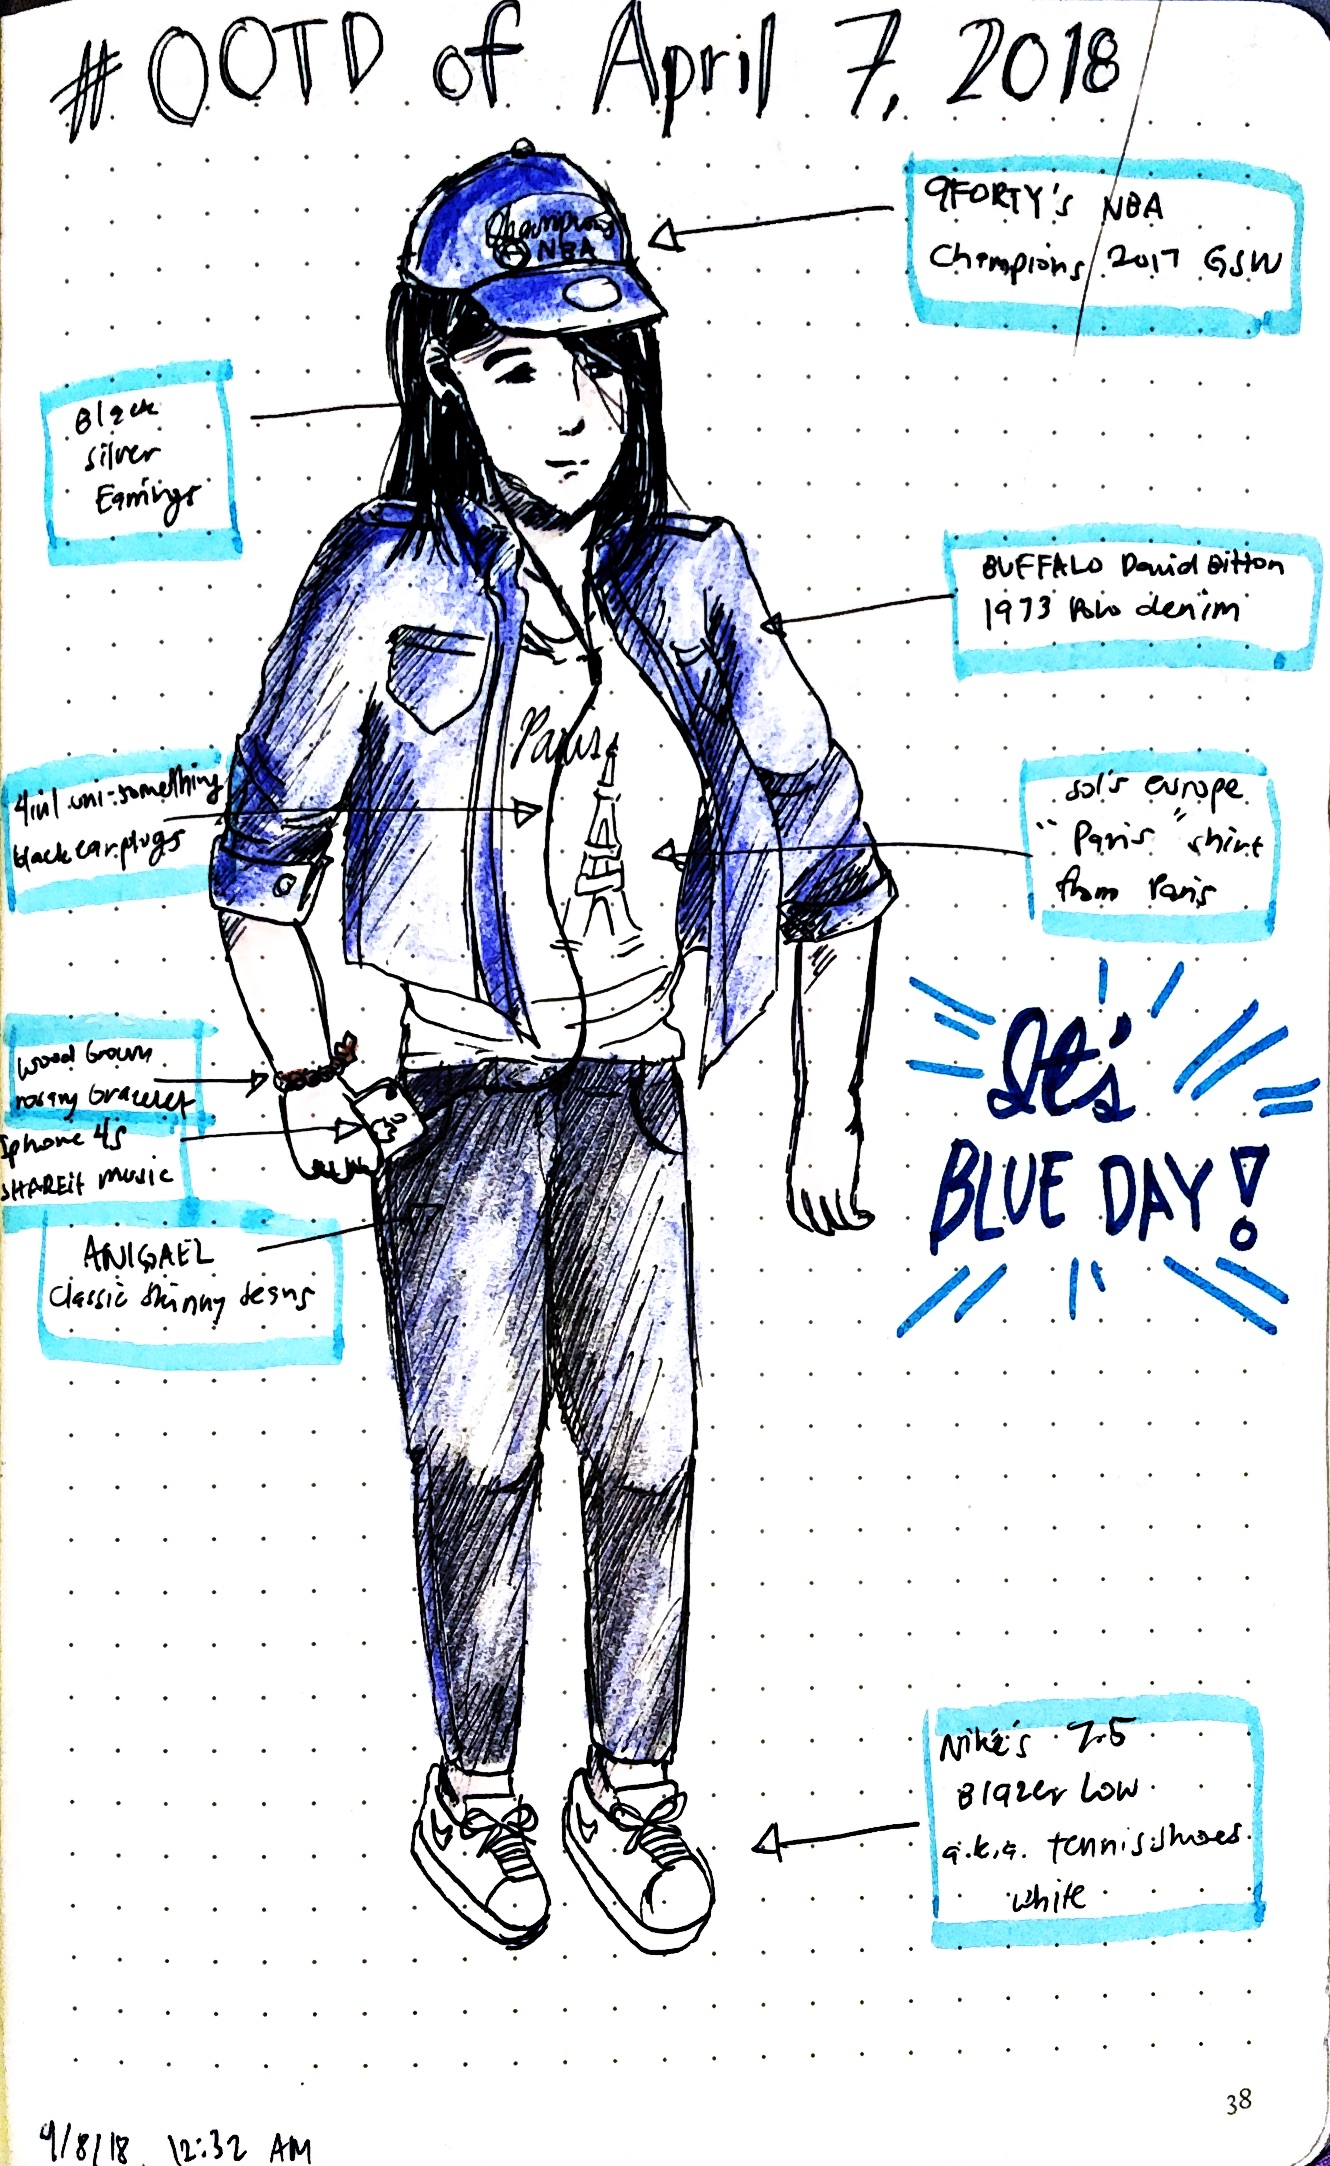 #OOTD of April 7, 2018
9FORTY's NBA
Champions 2017 GSW
Champions
NBA
Black
silver
Earrings
BUFFALO David Bitton
1973 Polo denim
Paris
4in1 uni-something
black earplugs
sol's europe
"Paris" shirt
from Paris
wood brown
rosary bracelet
Iphone 4s
SHAREit music
It's
BLUE DAY!
ANIGAEL
Classic Skinny Jeans
Nike's 7.5
Blazer Low
a.k.a. tennis shoes
white
38
4/8/18 12:32 AM